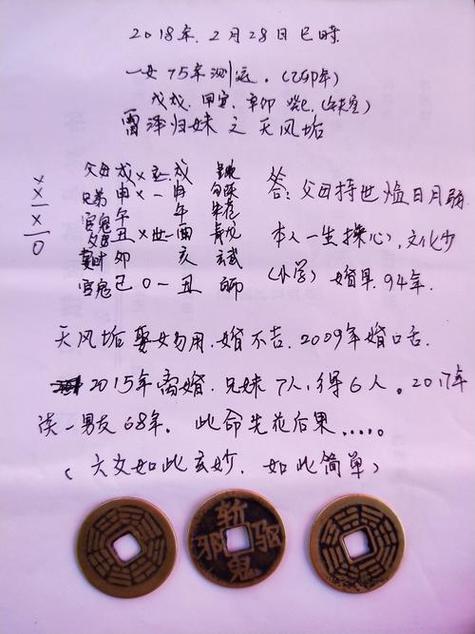 2018年.2月28日巳时.
一女75年测运.(乙卯年)
戊戌.甲寅.辛卯 癸巳.(午未空)
雷泽归妹之天风姤
父母戌×应戌
兄弟申×一申
官鬼午 午
父母丑×世一酉
妻财卯 亥
官鬼巳0一丑
×
×
×
0
答:父母持世临日月弱.
本人一生操心,文化少
(小学) 婚早.94年.
天风姤娶女勿用.婚不吉.2009年婚口舌.
2015年离婚.兄妹7人,得6人。2017年
谈一男友68年. 此命先花后果.....。
(六爻如此玄妙.如此简单)
斩
邪 驱
鬼